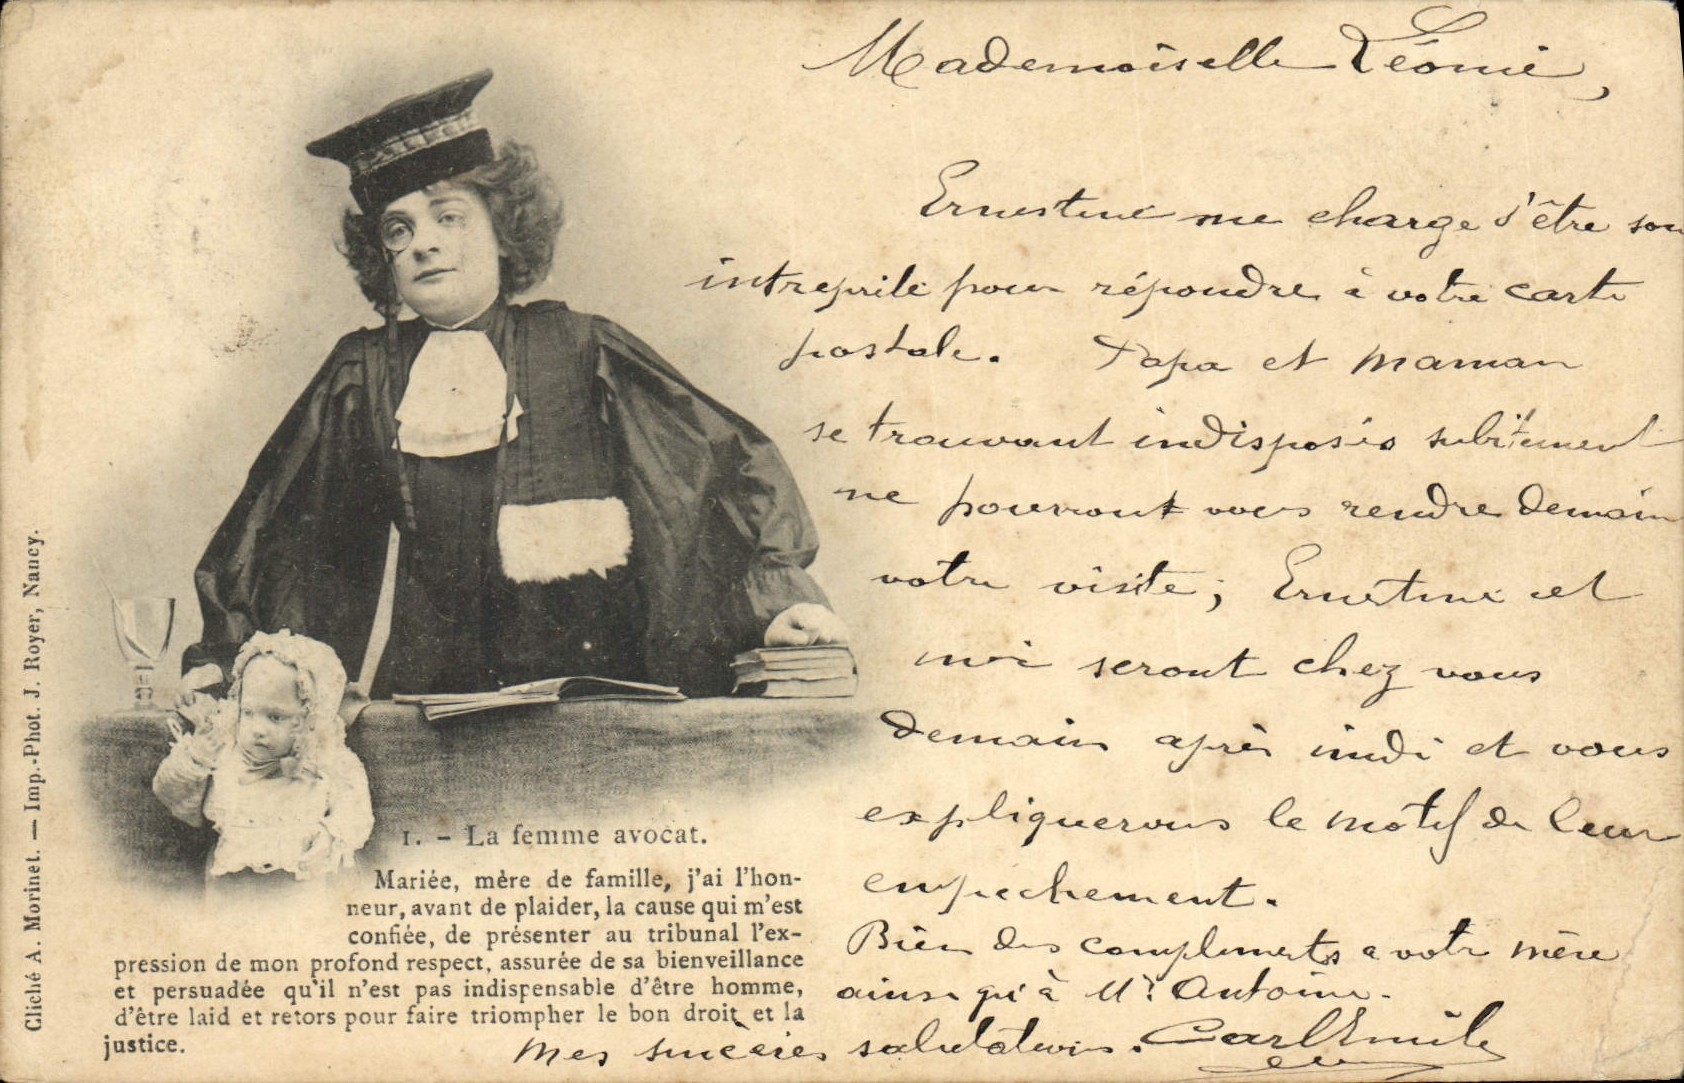 Mademoiselle Léonie,
Ernestine me charge d'être son
intreprite pour répondre à votre carte
postale. Papa et maman
se trouvant indisposés subitement
ne pourront vous rendre demain
votre visite; Ernestine et
moi seront chez vous
demain après midi et vous
expliquerons le motif de leur
empêchement.
Bien des compliments a votre mère
ainsi qu'à Mr Antoine.
mes sincères salutations. Carl Emile
1. - La femme avocat.
Mariée, mère de famille, j'ai l'hon-
neur, avant de plaider, la cause qui m'est
confiée, de présenter au tribunal l'ex-
pression de mon profond respect, assurée de sa bienveillance
et persuadée qu'il n'est pas indispensable d'être homme,
d'être laid et retors pour faire triompher le bon droit et la
justice.
Cliché A. Morinet. — Imp.-Phot. J. Royer, Nancy.